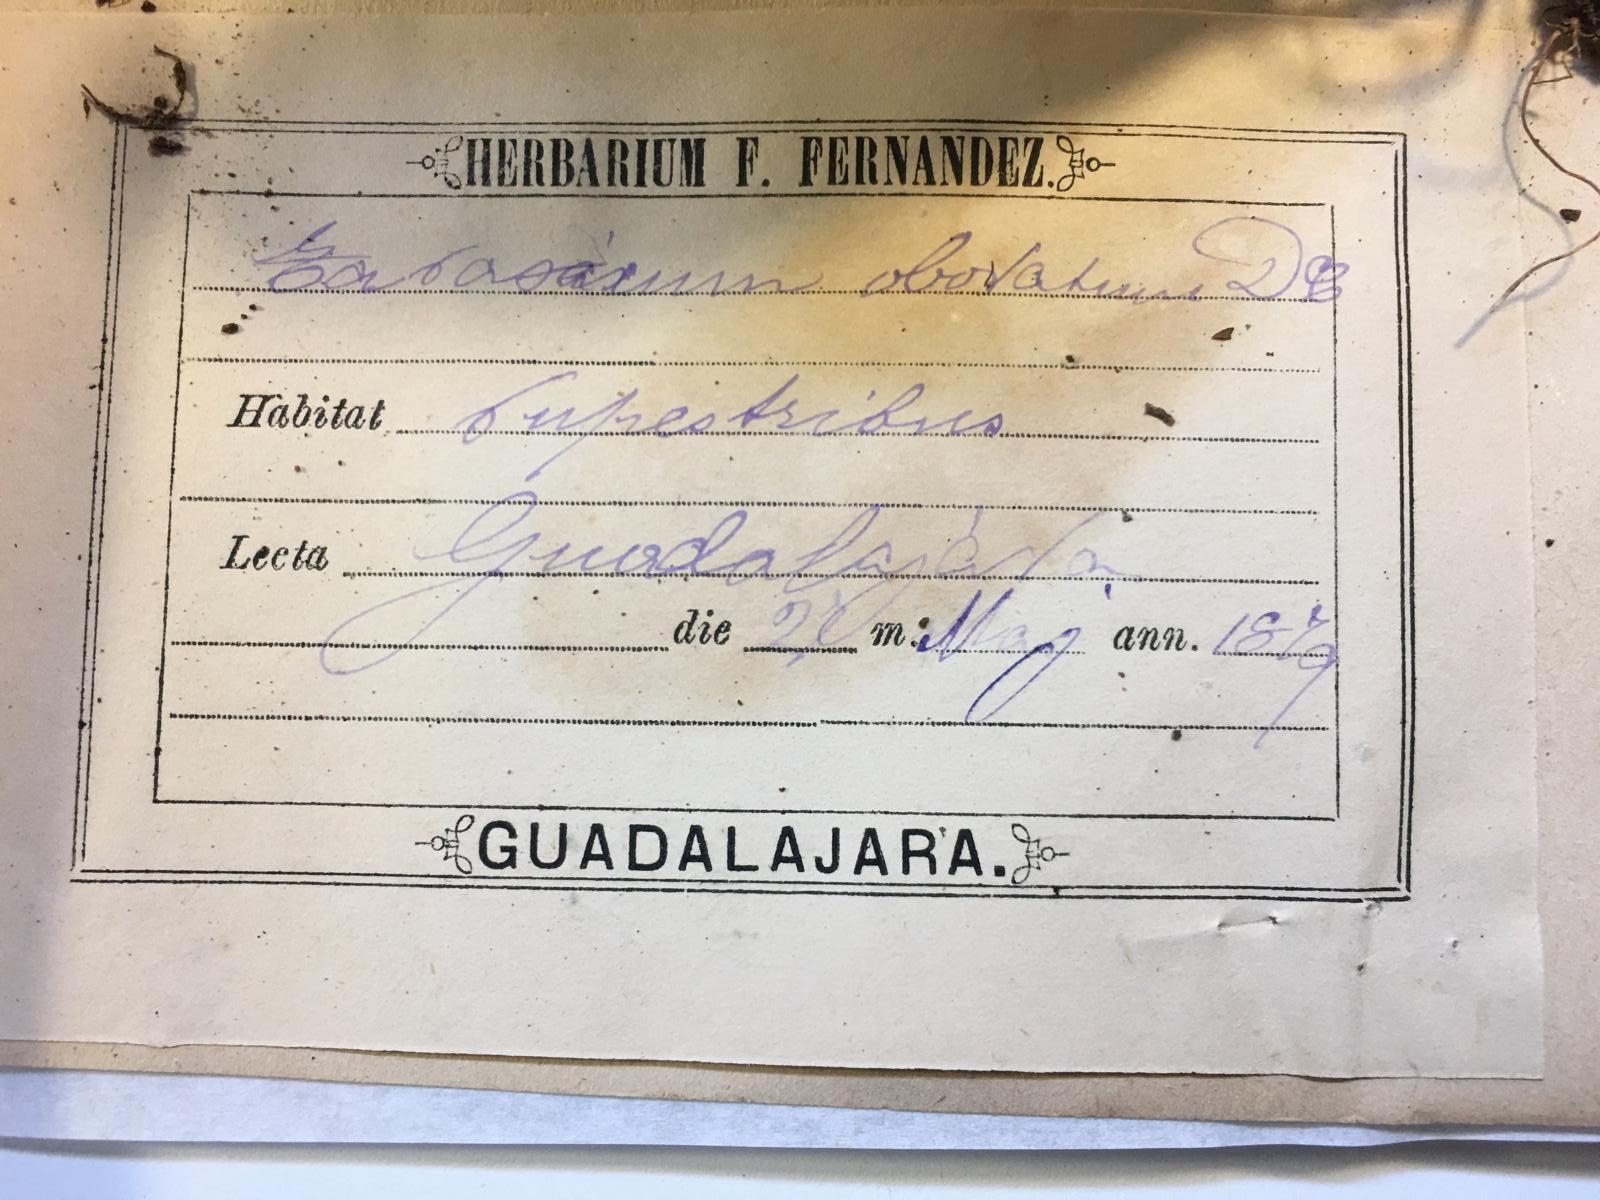 HERBARIUM F. FERNANDEZ.
Taraxacum obovatum DC
Habitat rupestribus
Lecta Guadalajara
die m: May ann. 1879
GUADALAJARA.